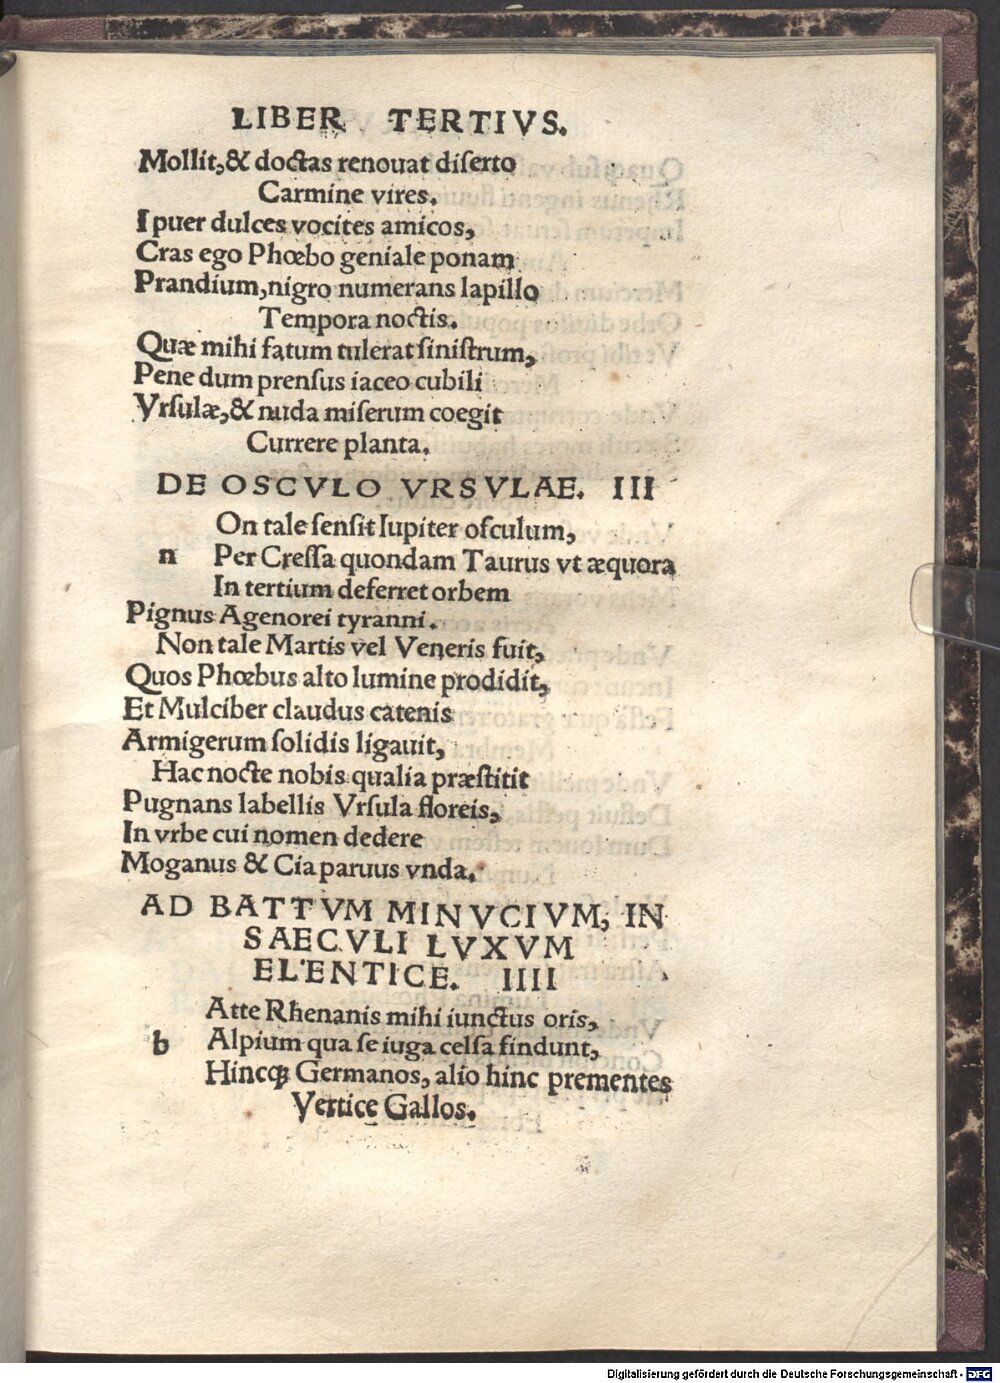 LIBER TERTIVS.
Mollit,& doctas renouat diſerto
Carmine vires.
I puer dulces vocites amicos,
Cras ego Phœbo geniale ponam
Prandium,nigro numerans lapillo
Tempora noctis.
Quæ mihi fatum tulerat ſiniſtrum,
Pene dum prenſus iaceo cubili
Vrſulæ,& nuda miſerum coegit
Currere planta.
DE OSCVLO VRSVLAE. III
On tale ſenſit Iupiter oſculum,
n Per Creſſa quondam Taurus vt æquora
In tertium deferret orbem
Pignus Agenorei tyranni.
Non tale Martis vel Veneris fuit,
Quos Phœbus alto lumine prodidit,
Et Mulciber claudus catenis
Armigerum ſolidis ligauit,
Hac nocte nobis qualia præſtitit
Pugnans labellis Vrſula floreis,
In vrbe cui nomen dedere
Moganus & Cia paruus vnda.
AD BATTVM MINVCIVM, IN
SAECVLI LVXVM
ELENTICE. IIII
Atte Rhenanis mihi iunctus oris,
b Alpium qua ſe iuga celſa findunt,
Hincqꝫ Germanos, alio hinc prementes
Vertice Gallos.
Digitalisierung gefördert durch die Deutsche Forschungsgemeinschaft - DFG